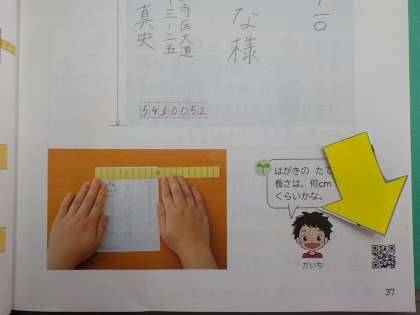 な様
寺区大道
三ー二五
真史
5430052
はがきの たて
長さは，何cm
くらいかな。
だいち
37